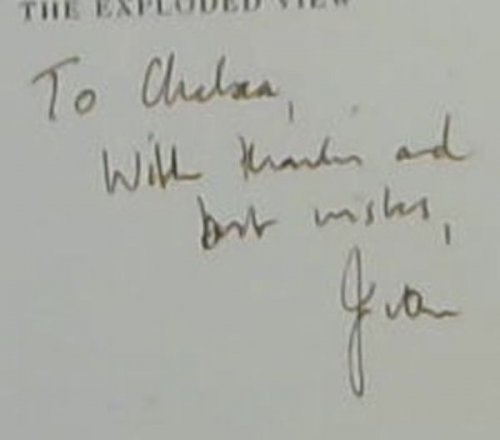 THE EXPLODED VIEW
To Chelsea,
With thanks and
best wishes,
Ivan